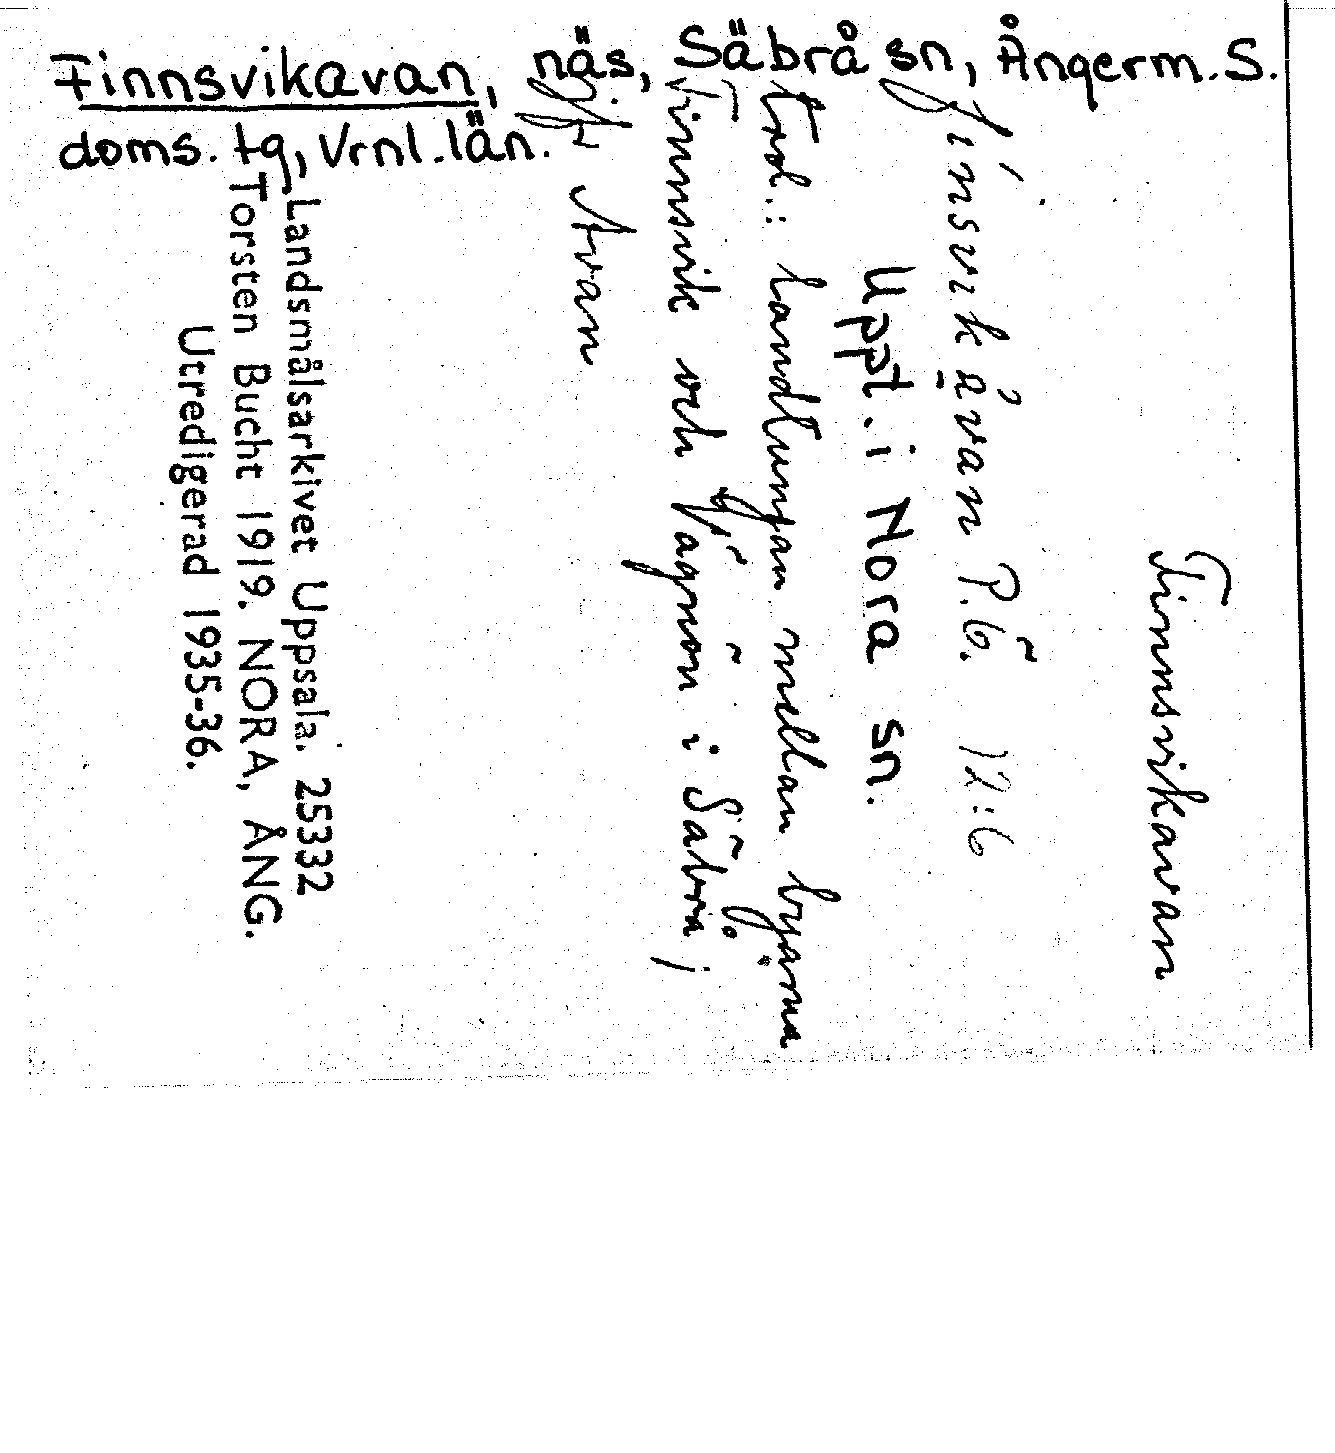 Finnsvikavan, näs, Säbrå sn, Ångerm. S.
doms. tg, Vrnl. län.
Finnsvikavan
P.Ö. 12:6
Uppt. i Nora sn.
Trol.: landtungan mellan byarna
Finnsvik och i Säbrå;
Jfr Avan
Landsmålsarkivet Uppsala. 25332
Torsten Bucht 1919. NORA, ÅNG.
Utredigerad 1935-36.